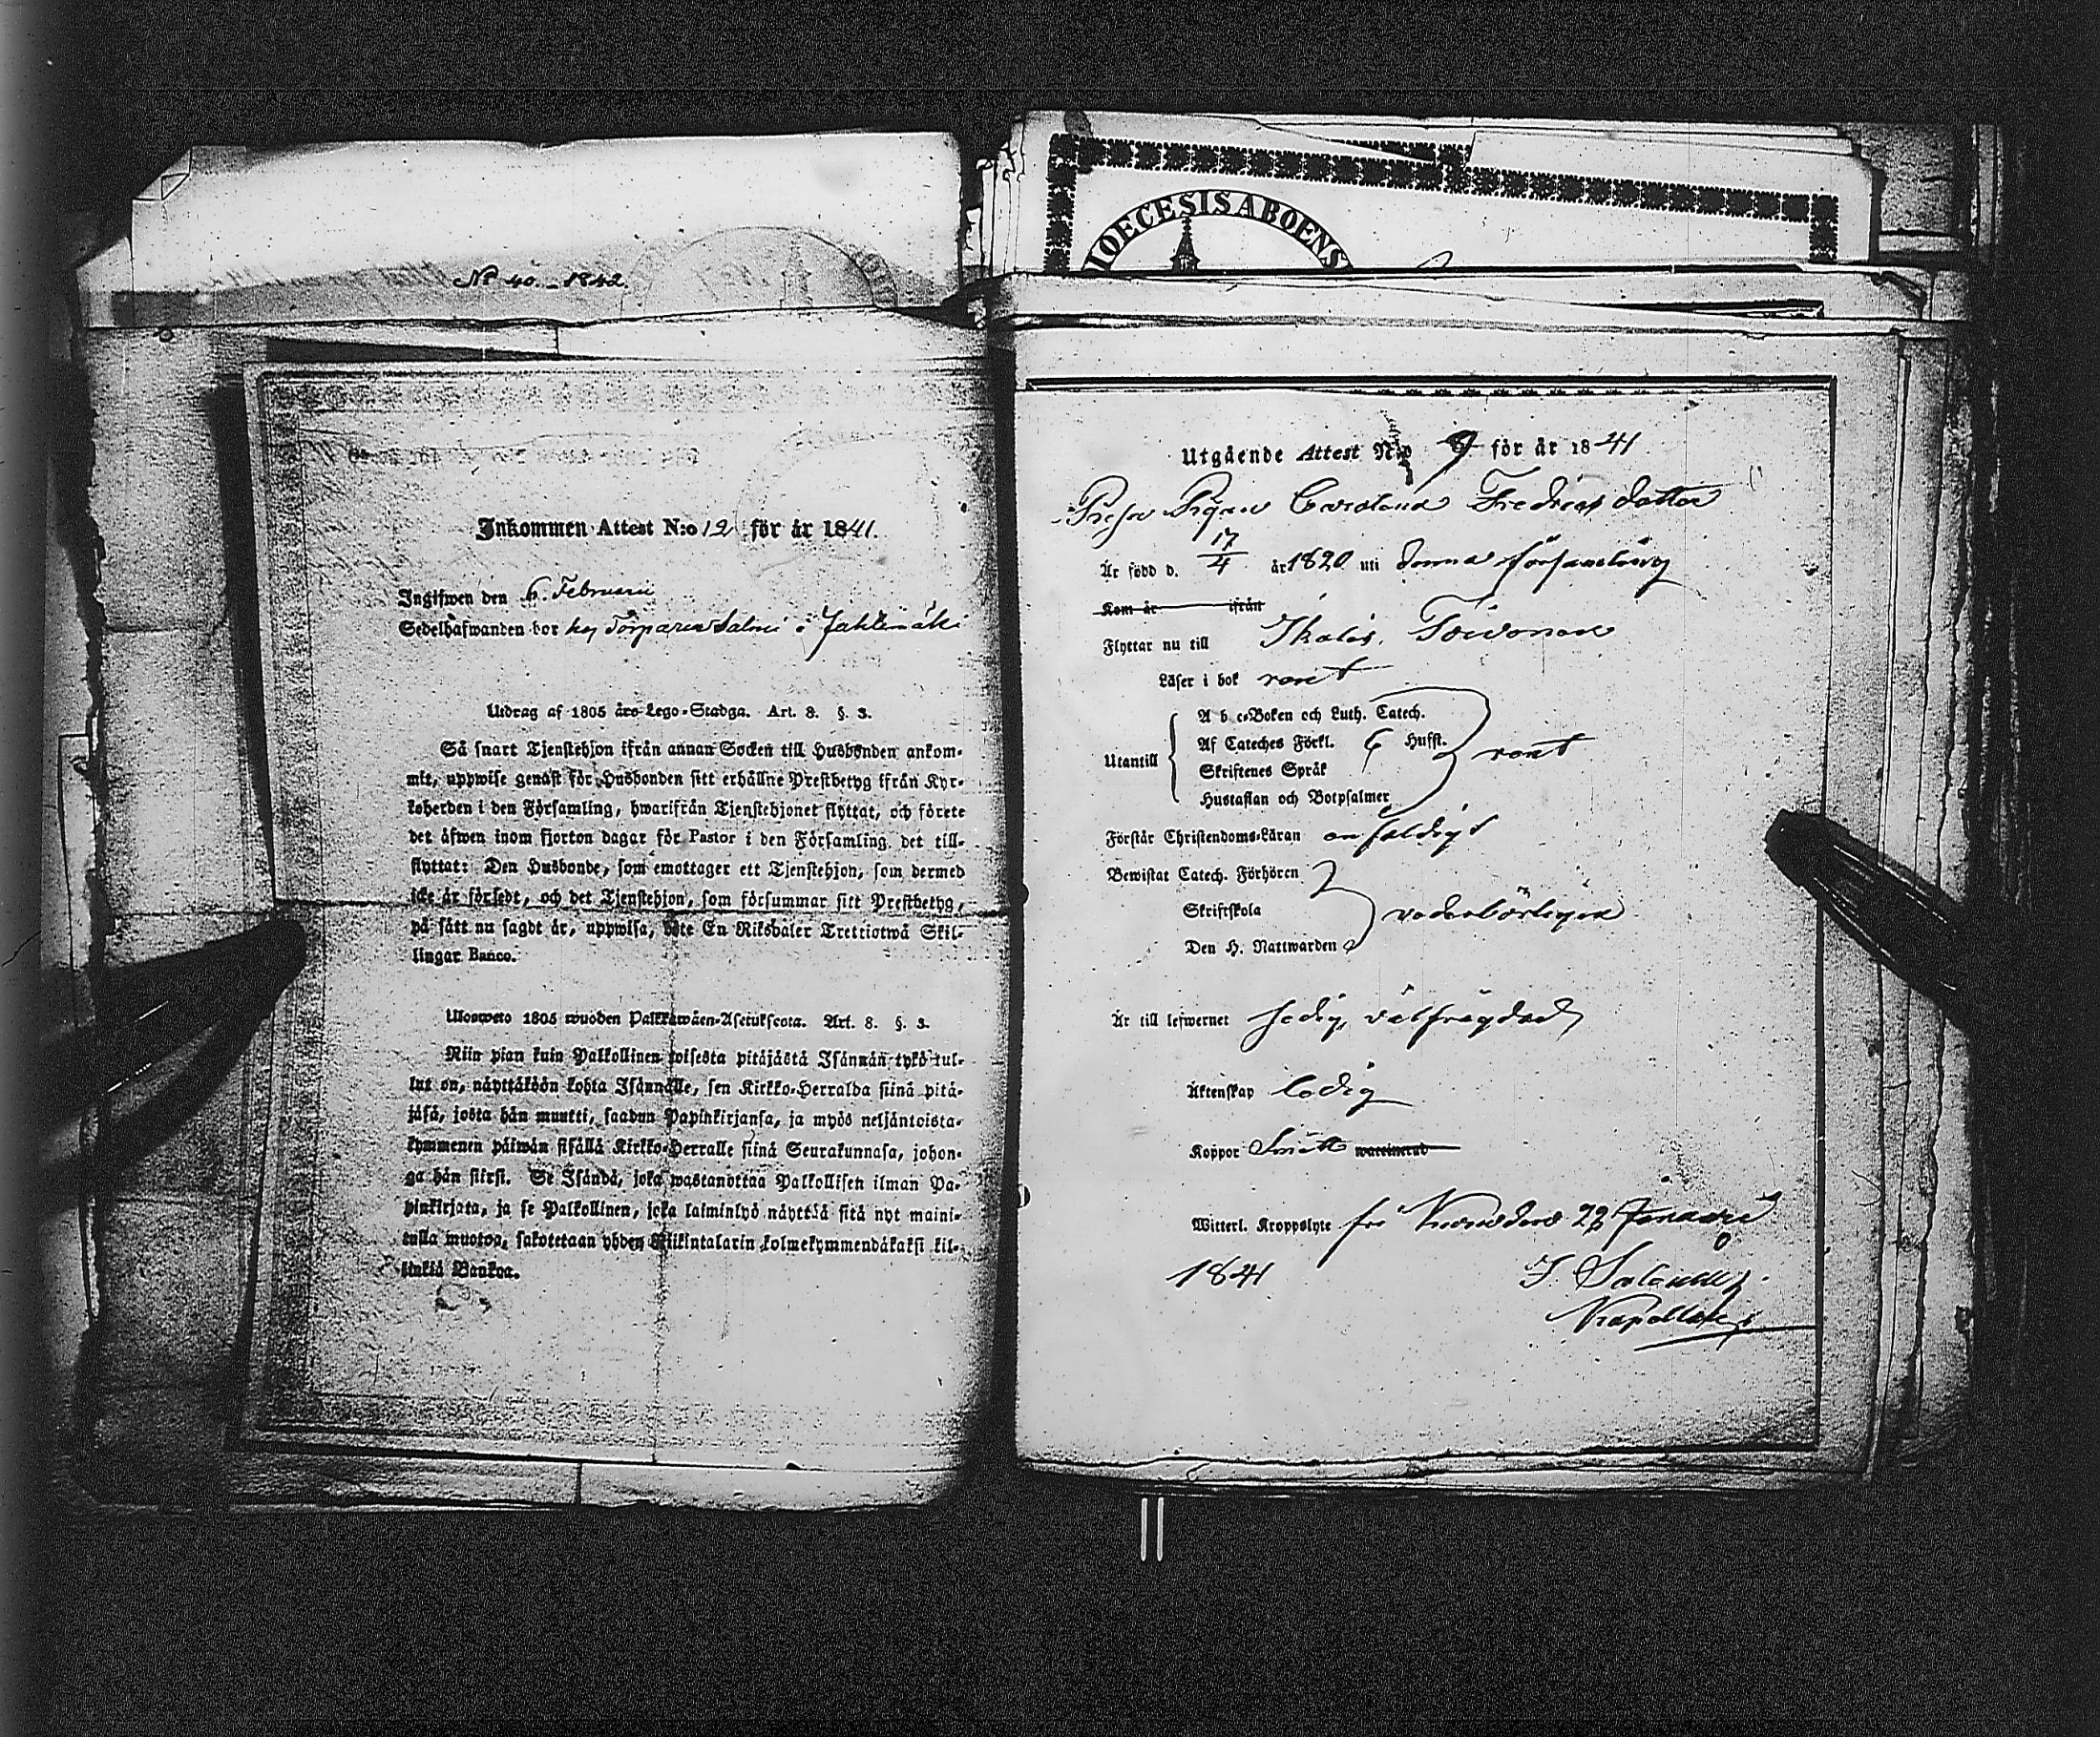 No 40. 1842.
Inkommen Attest N:o 12 för år 1841.
Ingifwen den 6. Februarii
Sedelhafwanden bor hos Torparen Salmi i
Utdrag af 1805 års Lego-Stadga. Art. 8. §. 3.
Så snart Tjenstehjon ifrån annan Socken till Husbonden ankom-
mit, uppwise genast för Husbonden sitt erhållne Prestbetyg ifrån Kyr-
koherden i den Församling, hwarifrån Tjenstehjonet flyttat, och förete
det äfwen inom fjorton dagar för Pastor i den Församling det till-
flyttat: Den Husbonde, som emottager ett Tjenstehjon, som dermed
icke är försedt, och det Tjenstehjon, som försummar sitt Prestbetyg,
på sätt nu sagdt är, uppwisa, böte En Riksdaler Trettiotwå Skil-
lingar Banco.
Ulosweto 1805 wuoden Palkkawäen-Asetuksesta. Art. 8. §. 3.
Niin pian kuin Palkollinen toisesta pitäjästä Isännän tykö tul-
lut on, näyttäköön kohta Isännälle, sen Kirkko-Herralda siinä pitä-
jäsä, josta hän muutti, saadun Papinkirjansa, ja myös neljäntoista-
kymmenen päiwän sisällä Kirkko-Herralle siinä Seurakunnasa, johon-
ga hän siirsi. Se Isändä, joka wastanottaa Palkollisen ilman Pa-
pinkirjata, ja se Palkollinen, joka laiminlyö näyttää sitä nyt maini-
tulla muotoa, sakotetaan yhden Riikintalarin kolmekymmendäkaksi kil-
linkiä Bankoa.
DIOECESIS ABOENS
Utgående Attest N:o 9 för år 1841
Pigan Carolina Fredricsdotter
Är född d. 17/4 år 1820 uti denna församling
Kom år ifrån
Flyttar nu till Ikalis, Toivonen
Läser i bok rent
A b c-Boken och Luth. Catech.
Af Cateches Förkl. 6 Hufst.
Utantill rent
Skriftenes Språk
Hustaflan och Botpsalmer
Förstår Christendoms-Läran enfaldigt
Bewistat Catech. Förhören
Skriftskola wederbörligen
Den H. Nattwarden
Är till lefwernet sedig, välfrägdad
Äktenskap ledig
Koppor Smitt waccinerad
Witterl. Kroppslyte fri 22 Januarii
1841
Kapellan